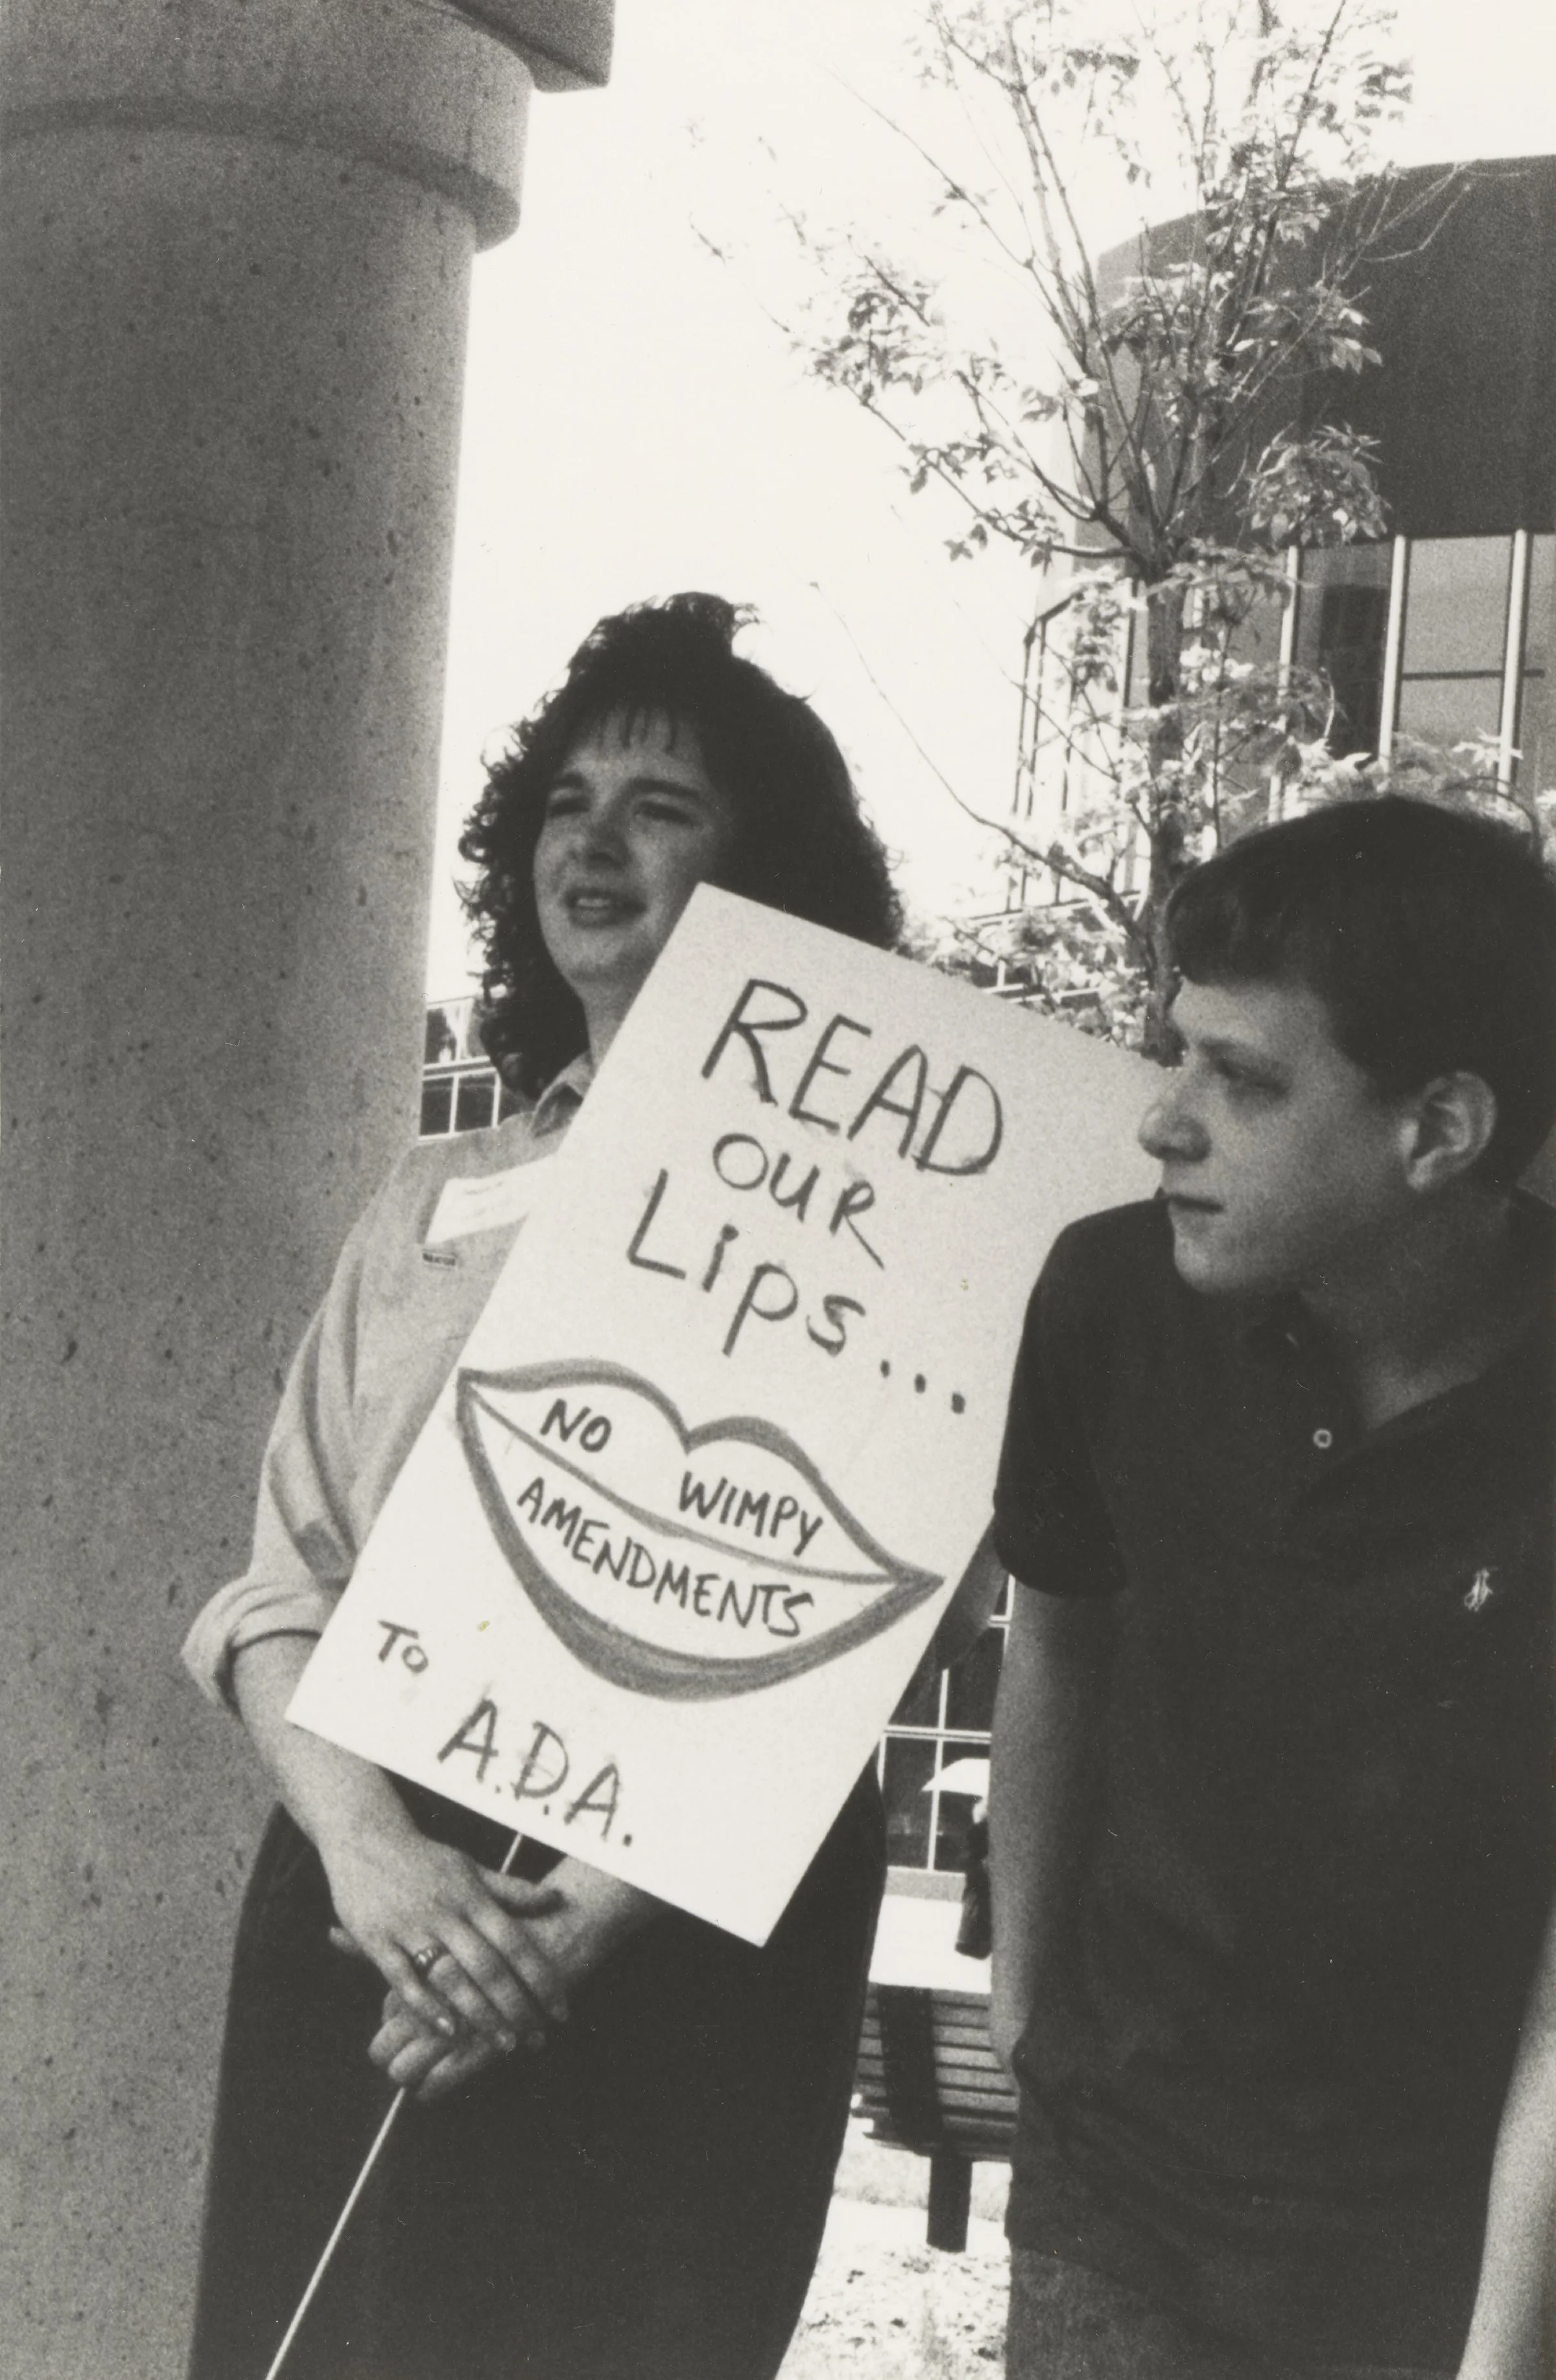 READ
OUR
Lips...
NO WIMPY
AMENDMENTS
TO
A.D.A.